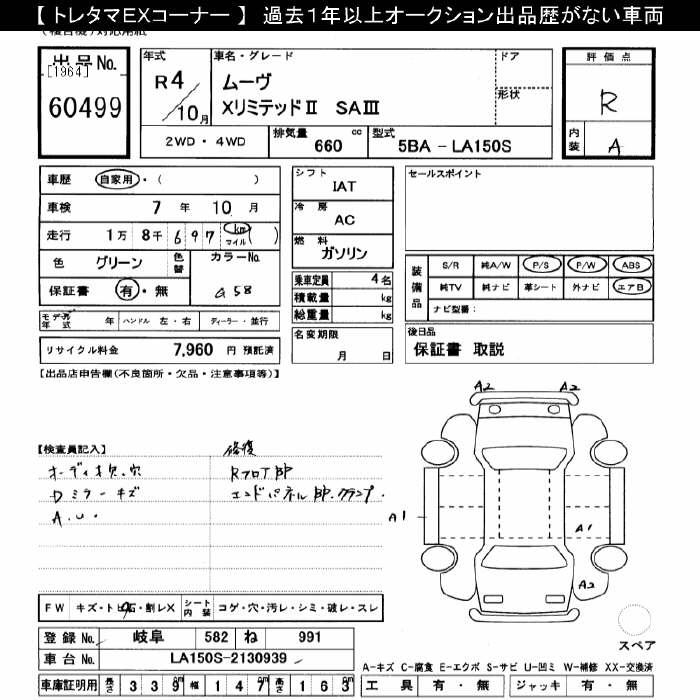 【 トレタマＥＸコーナー 】 過去１年以上オークション出品歴がない車両
出 品 No.
[1964]
60499
年式
R 4
10 月
車名・グレード
ムーヴ
XリミテッドⅡ SAⅢ
ドア
形状
評 価 点
R
内装 A
2WD ・ 4WD
排気量 660 cc
型式 5BA － LA150S
車歴 自家用・( )
車検 7 年 10 月
走行 1万 8千 6 9 7 km マイル ( )
色 グリーン 色替 カラーNo.
保証書 有・無 G58
モデル年式 年 ハンドル 左・右 ディーラー・並行
リサイクル料金 7,960 円 預託済
シフト IAT
冷 房 AC
燃 料 ガソリン
乗車定員 4 名
積載量 kg
総重量 kg
名変期限
月 日
セールスポイント
装備品
S/R 純A/W P/S P/W ABS
純TV 純ナビ 革シート 外ナビ エアB
ナビ型番：
後日品
保証書 取説
【出品店申告欄(不良箇所・欠品・注意事項等)】
【検査員記入】
オーディオ欠.穴
Dミラーキズ
A.U.
修復
Rフロア部
エンドパネル部.クランプ.
A2 A2
A1
A1
A2
スペア
FW キズ・トビ石・割レX シート内装 コゲ・穴・汚レ・シミ・破レ・スレ
登録 No. 岐阜 582 ね 991
車台 No. LA150S-2130939
車庫証明用 長さ 3 3 9 幅 1 4 7 高さ 1 6 3
A-キズ C-腐食 E-エクボ S-サビ U-凹ミ W-補修 XX-交換済
工 具 有 ・ 無 ジャッキ 有 ・ 無